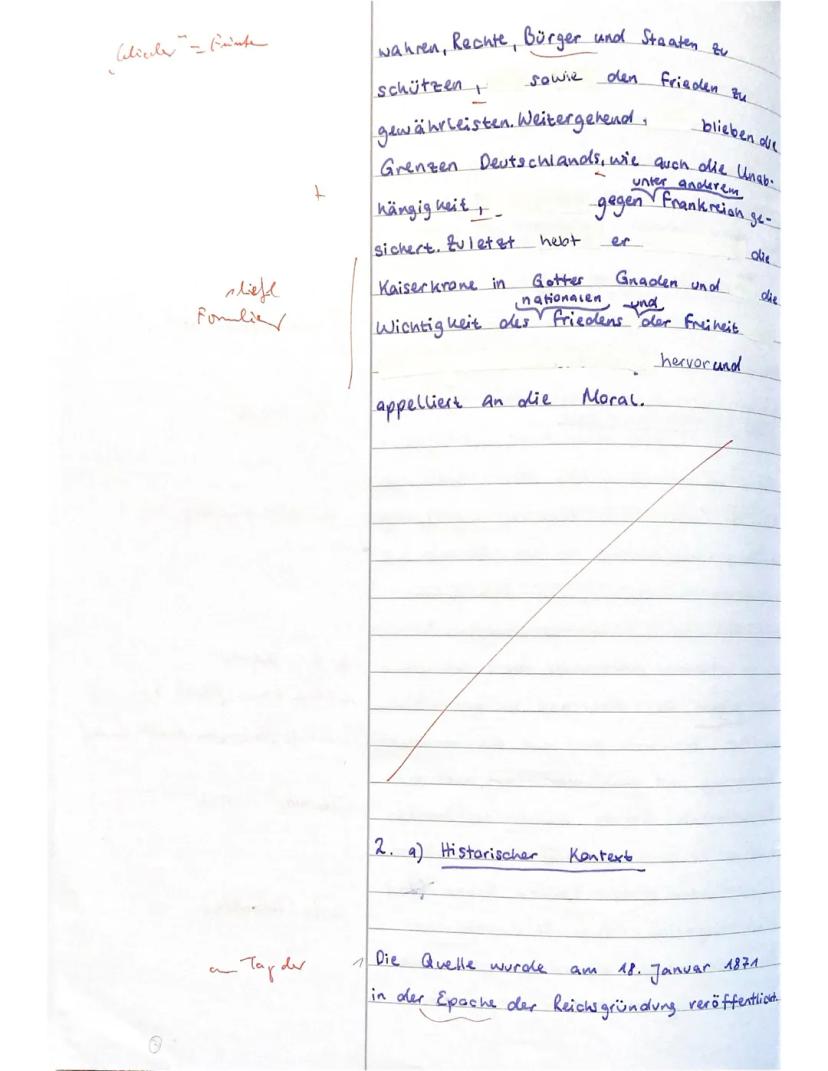 wahren, Rechte, Bürger und Staaten zu
schützen, sowie den Frieden zu
gewährleisten. Weitergehend, blieben die
Grenzen Deutschlands, wie auch die Unab-
unter anderem
hängigkeit, gegen Frankreich ge-
sichert. Zuletzt hebt er die
Kaiserkrone in Gottes Gnaden und die
nationalen und
Wichtigkeit des Friedens der Freiheit
hervor und
appelliert an die Moral.
+
2. a) Historischer Kontext
am Tag der
Die Quelle wurde am 18. Januar 1871
in der Epoche der Reichsgründung veröffentlicht.